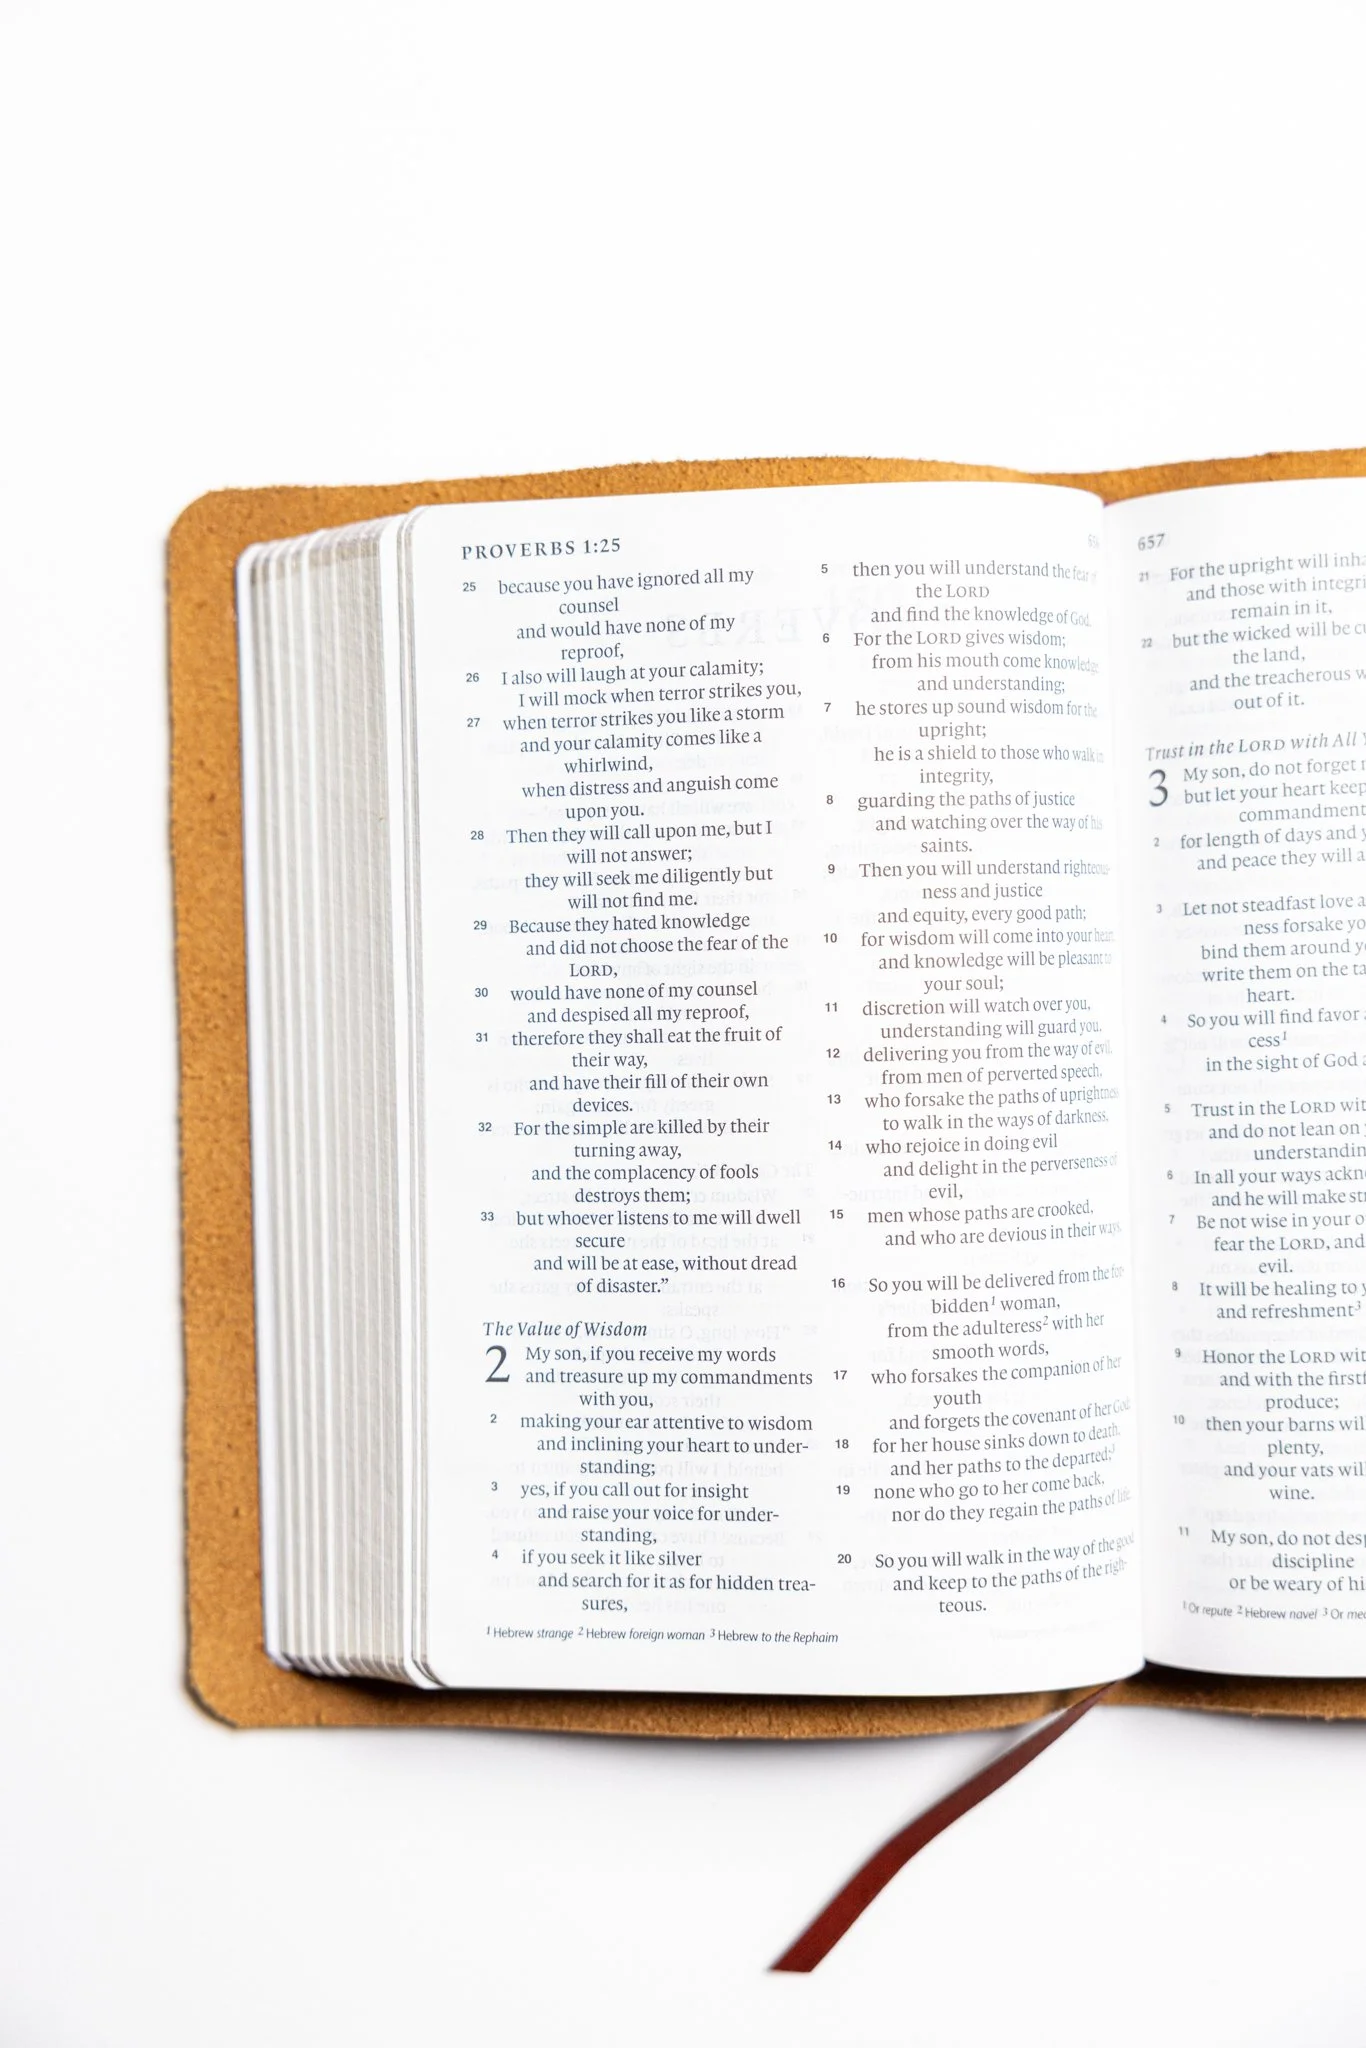 PROVERBS 1:25
25 because you have ignored all my
counsel
and would have none of my
reproof,
26 I also will laugh at your calamity;
I will mock when terror strikes you,
27 when terror strikes you like a storm
and your calamity comes like a
whirlwind,
when distress and anguish come
upon you.
28 Then they will call upon me, but I
will not answer;
they will seek me diligently but
will not find me.
29 Because they hated knowledge
and did not choose the fear of the
LORD,
30 would have none of my counsel
and despised all my reproof,
31 therefore they shall eat the fruit of
their way,
and have their fill of their own
devices.
32 For the simple are killed by their
turning away,
and the complacency of fools
destroys them;
33 but whoever listens to me will dwell
secure
and will be at ease, without dread
of disaster.”
The Value of Wisdom
2 My son, if you receive my words
and treasure up my commandments
with you,
2 making your ear attentive to wisdom
and inclining your heart to under-
standing;
3 yes, if you call out for insight
and raise your voice for under-
standing,
4 if you seek it like silver
and search for it as for hidden trea-
sures,
5 then you will understand the fear of
the LORD
and find the knowledge of God.
6 For the LORD gives wisdom;
from his mouth come knowledge
and understanding;
7 he stores up sound wisdom for the
upright;
he is a shield to those who walk in
integrity,
8 guarding the paths of justice
and watching over the way of his
saints.
9 Then you will understand righteous-
ness and justice
and equity, every good path;
10 for wisdom will come into your heart,
and knowledge will be pleasant to
your soul;
11 discretion will watch over you,
understanding will guard you,
12 delivering you from the way of evil,
from men of perverted speech,
13 who forsake the paths of uprightness
to walk in the ways of darkness,
14 who rejoice in doing evil
and delight in the perverseness of
evil,
15 men whose paths are crooked,
and who are devious in their ways.
16 So you will be delivered from the for-
bidden1 woman,
from the adulteress2 with her
smooth words,
17 who forsakes the companion of her
youth
and forgets the covenant of her God;
18 for her house sinks down to death,
and her paths to the departed;3
19 none who go to her come back,
nor do they regain the paths of life.
20 So you will walk in the way of the good
and keep to the paths of the righ-
teous.
1 Hebrew strange 2 Hebrew foreign woman 3 Hebrew to the Rephaim
657
21 For the upright will
and those with
remain in it,
22 but the wicked will be
the land,
and the treacherous
out of it.
Trust in the LORD with All
3 My son, do not forget
but let your heart keep
commandment
2 for length of days and
and peace they will
3 Let not steadfast love
ness forsake
bind them around
write them on the
heart.
4 So you will find favor
cess1
in the sight of God
5 Trust in the LORD
and do not lean on
6 In all your ways
and he will make
7 Be not wise in your
fear the LORD, and
evil.
8 It will be healing to
and refreshment3
9 Honor the LORD
and with the
produce;
10 then your barns
plenty,
and your vats will
wine.
11 My son, do not
discipline
or be weary of
1 Or repute 2 Hebrew navel 3 Or